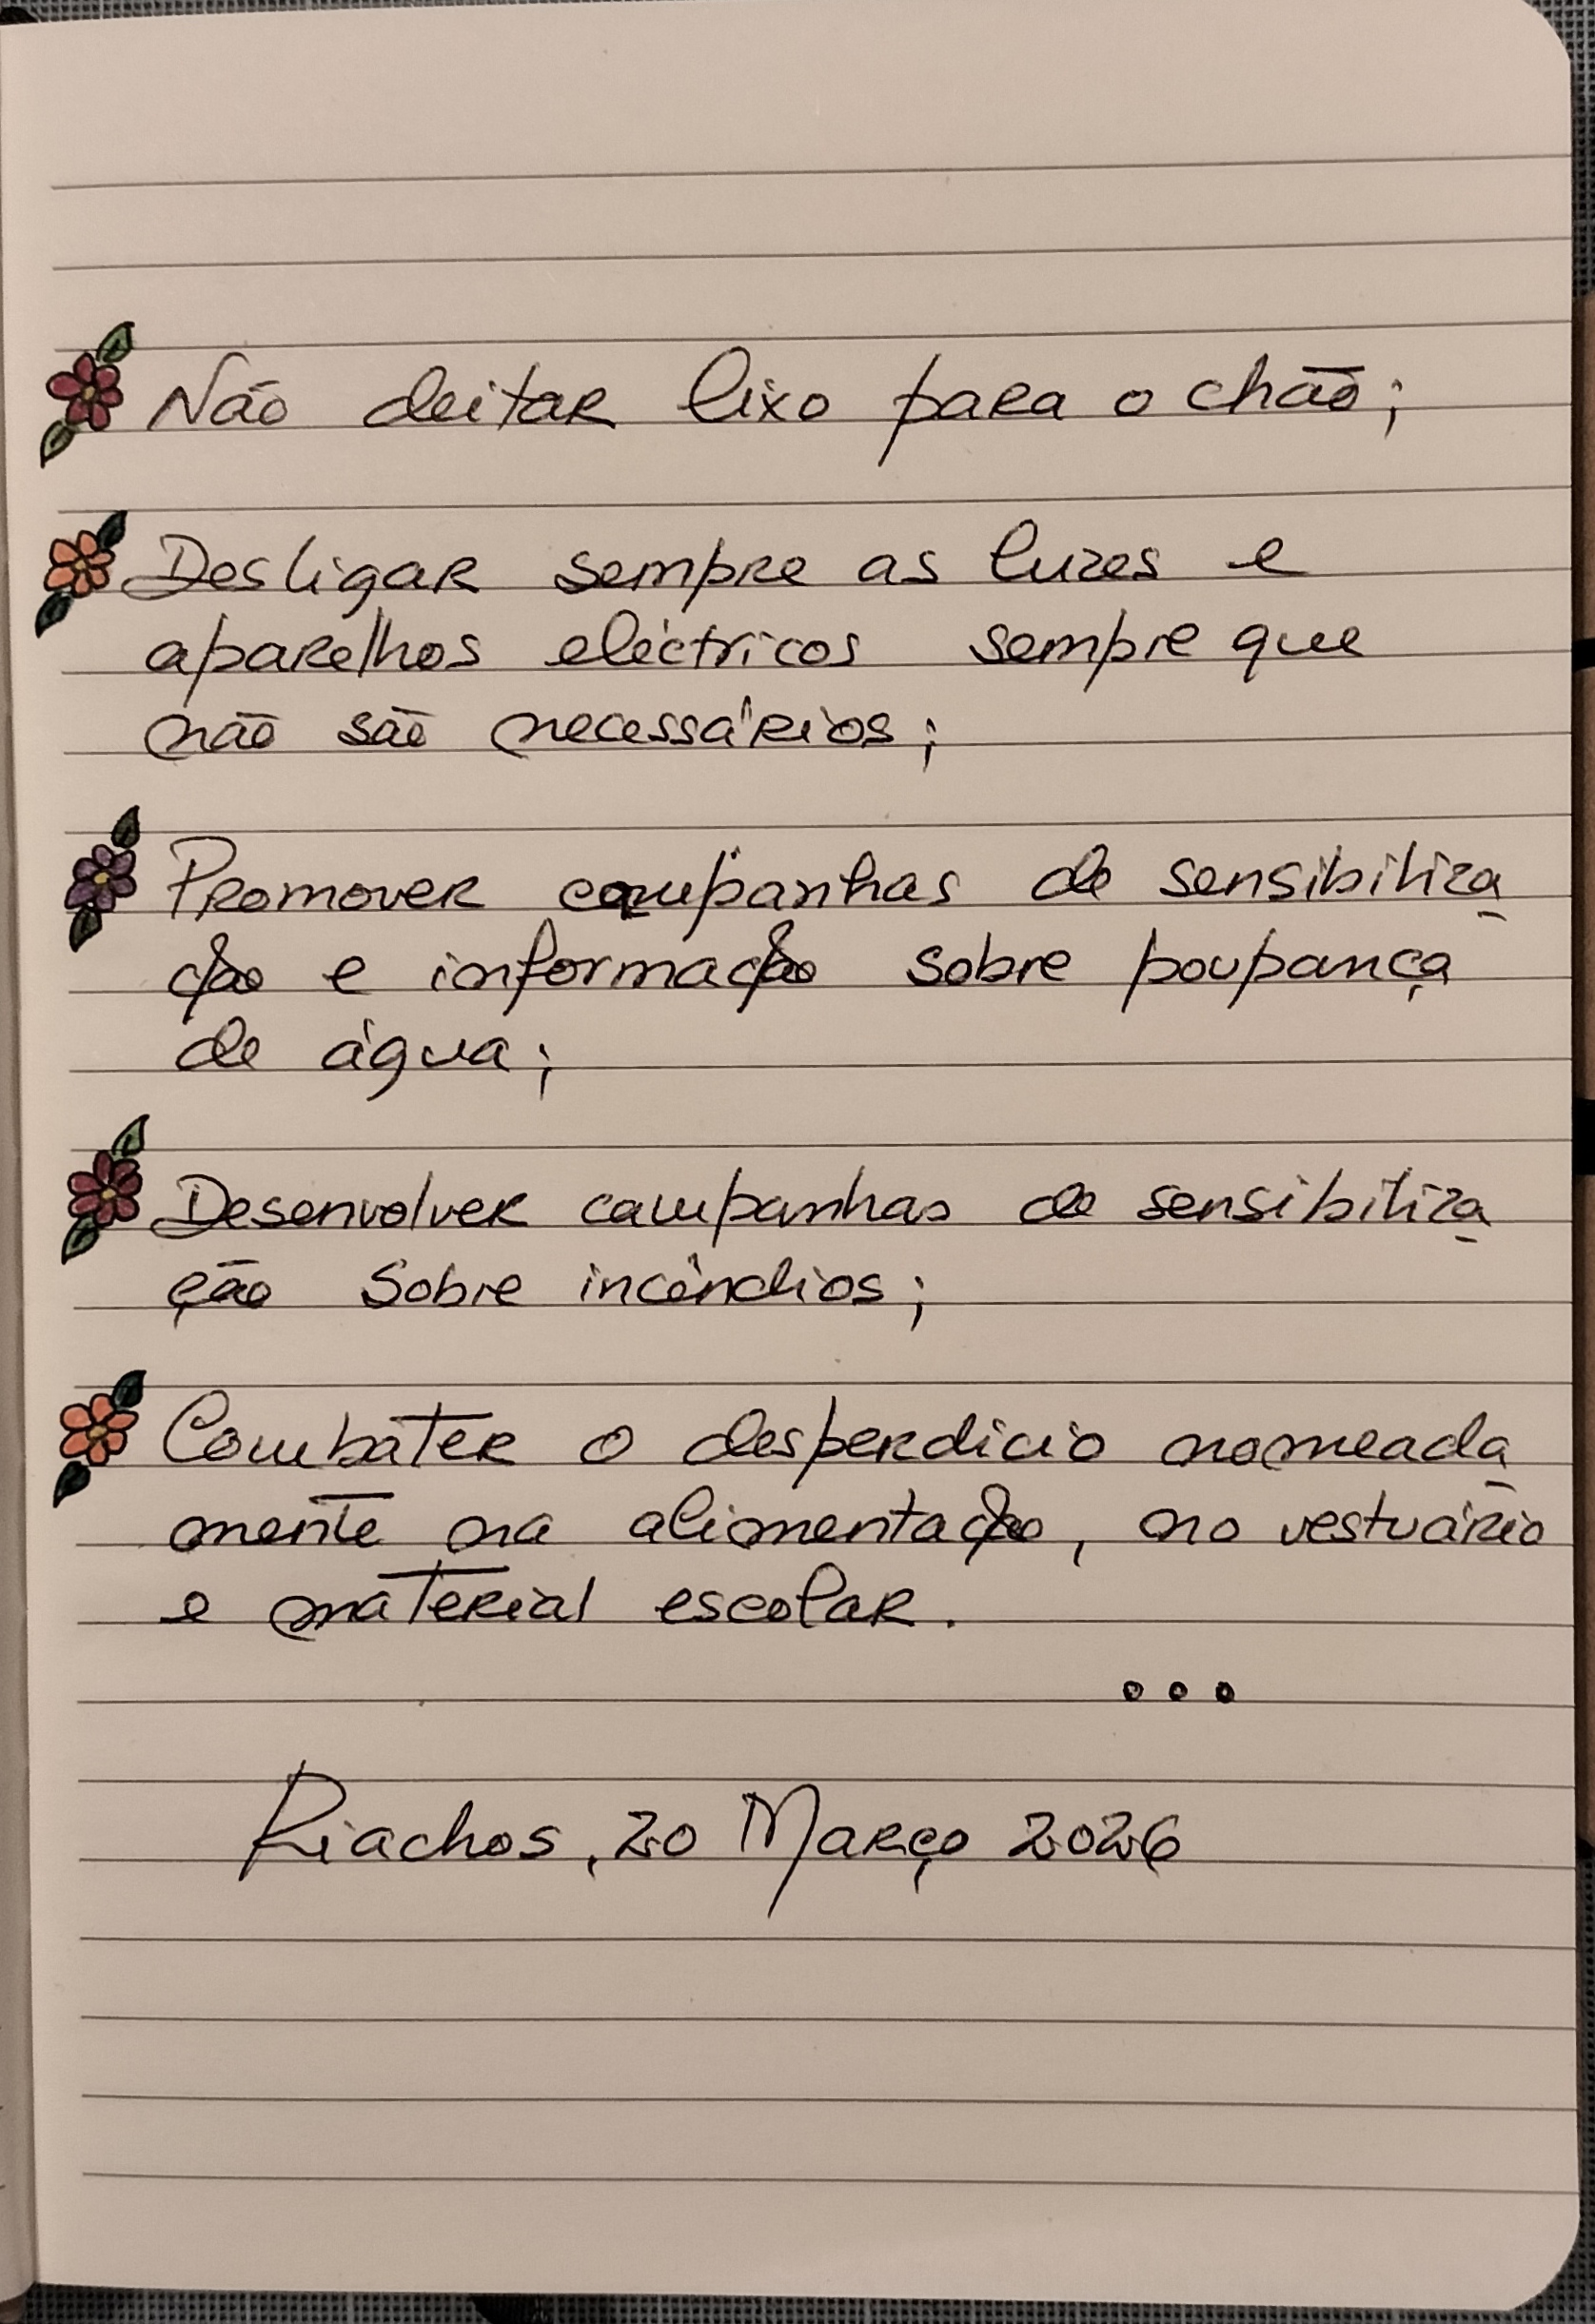 Não deitar lixo para o chão;
Desligar sempre as luzes e
aparelhos eléctricos sempre que
não são necessários;
Promover campanhas de sensibiliza
ção e informação sobre poupança
de água;
Desenvolver campanhas de sensibiliza
ção sobre incêndios;
Combater o desperdício nomeada
mente na alimentação, no vestuário
e material escolar.
...
Riachos, 20 Março 2026